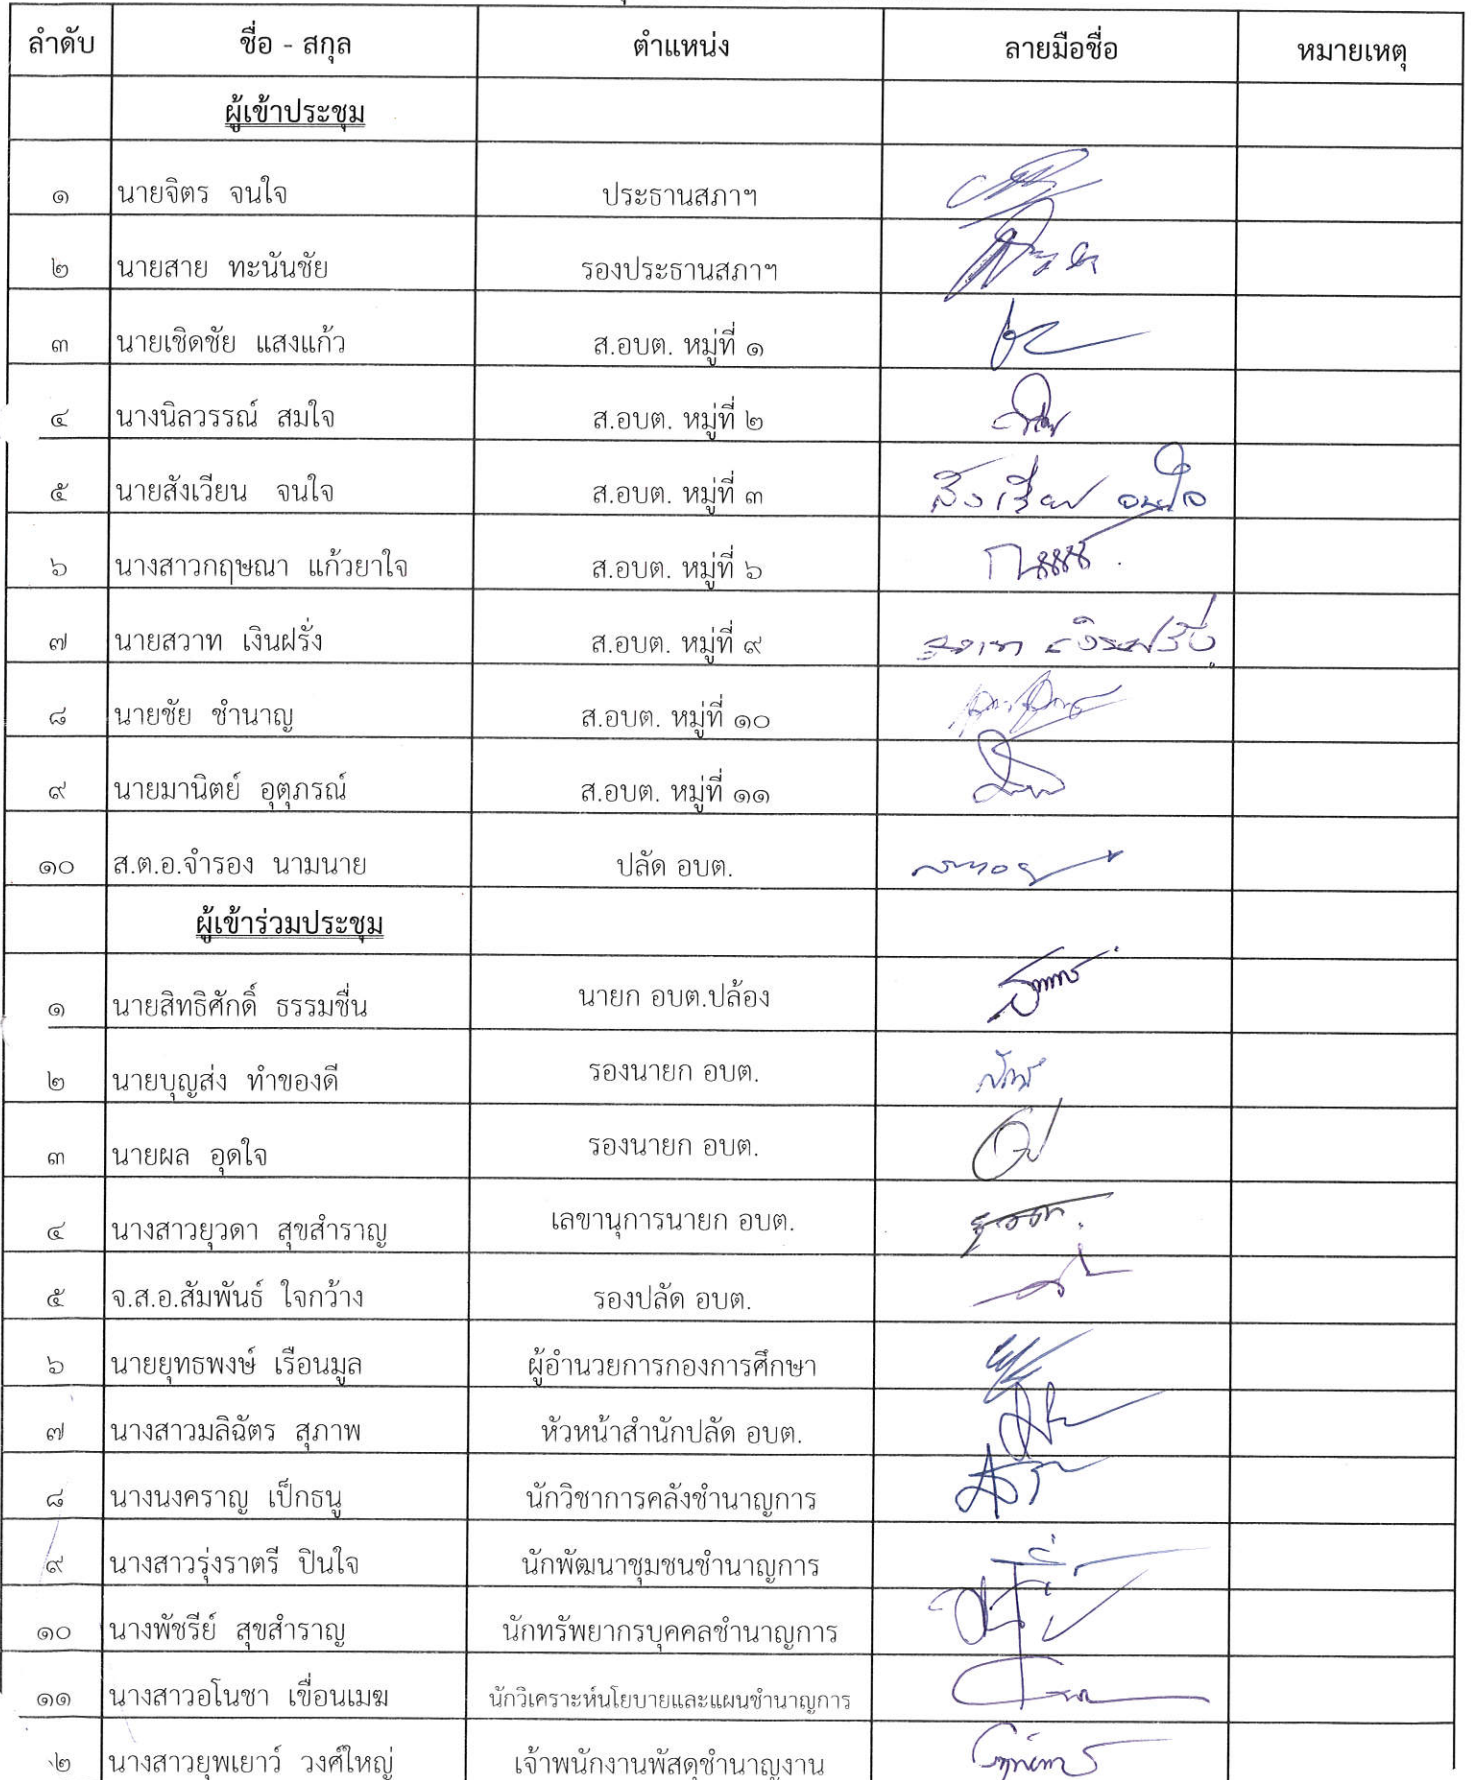 ลำดับ ชื่อ - สกุล ตำแหน่ง ลายมือชื่อ หมายเหตุ
ผู้เข้าประชุม
๑ นายจิตร จนใจ ประธานสภาฯ
๒ นายสาย ทะนันชัย รองประธานสภาฯ
๓ นายเชิดชัย แสงแก้ว ส.อบต. หมู่ที่ ๑
๔ นางนิลวรรณ์ สมใจ ส.อบต. หมู่ที่ ๒
๕ นายสังเวียน จนใจ ส.อบต. หมู่ที่ ๓ สังเวียน จนใจ
๖ นางสาวกฤษณา แก้วยาใจ ส.อบต. หมู่ที่ ๖
๗ นายสวาท เงินฝรั่ง ส.อบต. หมู่ที่ ๙ สวาท เงินฝรั่ง
๘ นายชัย ชำนาญ ส.อบต. หมู่ที่ ๑๐
๙ นายมานิตย์ อุตุภรณ์ ส.อบต. หมู่ที่ ๑๑
๑๐ ส.ต.อ.จำรอง นามนาย ปลัด อบต.
ผู้เข้าร่วมประชุม
๑ นายสิทธิศักดิ์ ธรรมชื่น นายก อบต.ปล้อง
๒ นายบุญส่ง ทำของดี รองนายก อบต.
๓ นายผล อุดใจ รองนายก อบต.
๔ นางสาวยุวดา สุขสำราญ เลขานุการนายก อบต. ยุวดา
๕ จ.ส.อ.สัมพันธ์ ใจกว้าง รองปลัด อบต.
๖ นายยุทธพงษ์ เรือนมูล ผู้อำนวยการกองการศึกษา
๗ นางสาวมลิฉัตร สุภาพ หัวหน้าสำนักปลัด อบต.
๘ นางนงคราญ เป็กธนู นักวิชาการคลังชำนาญการ
๙ นางสาวรุ่งราตรี ปินใจ นักพัฒนาชุมชนชำนาญการ
๑๐ นางพัชรีย์ สุขสำราญ นักทรัพยากรบุคคลชำนาญการ
๑๑ นางสาวอโนชา เขื่อนเมฆ นักวิเคราะห์นโยบายและแผนชำนาญการ
๒ นางสาวยุพเยาว์ วงศ์ใหญ่ เจ้าพนักงานพัสดุชำนาญงาน